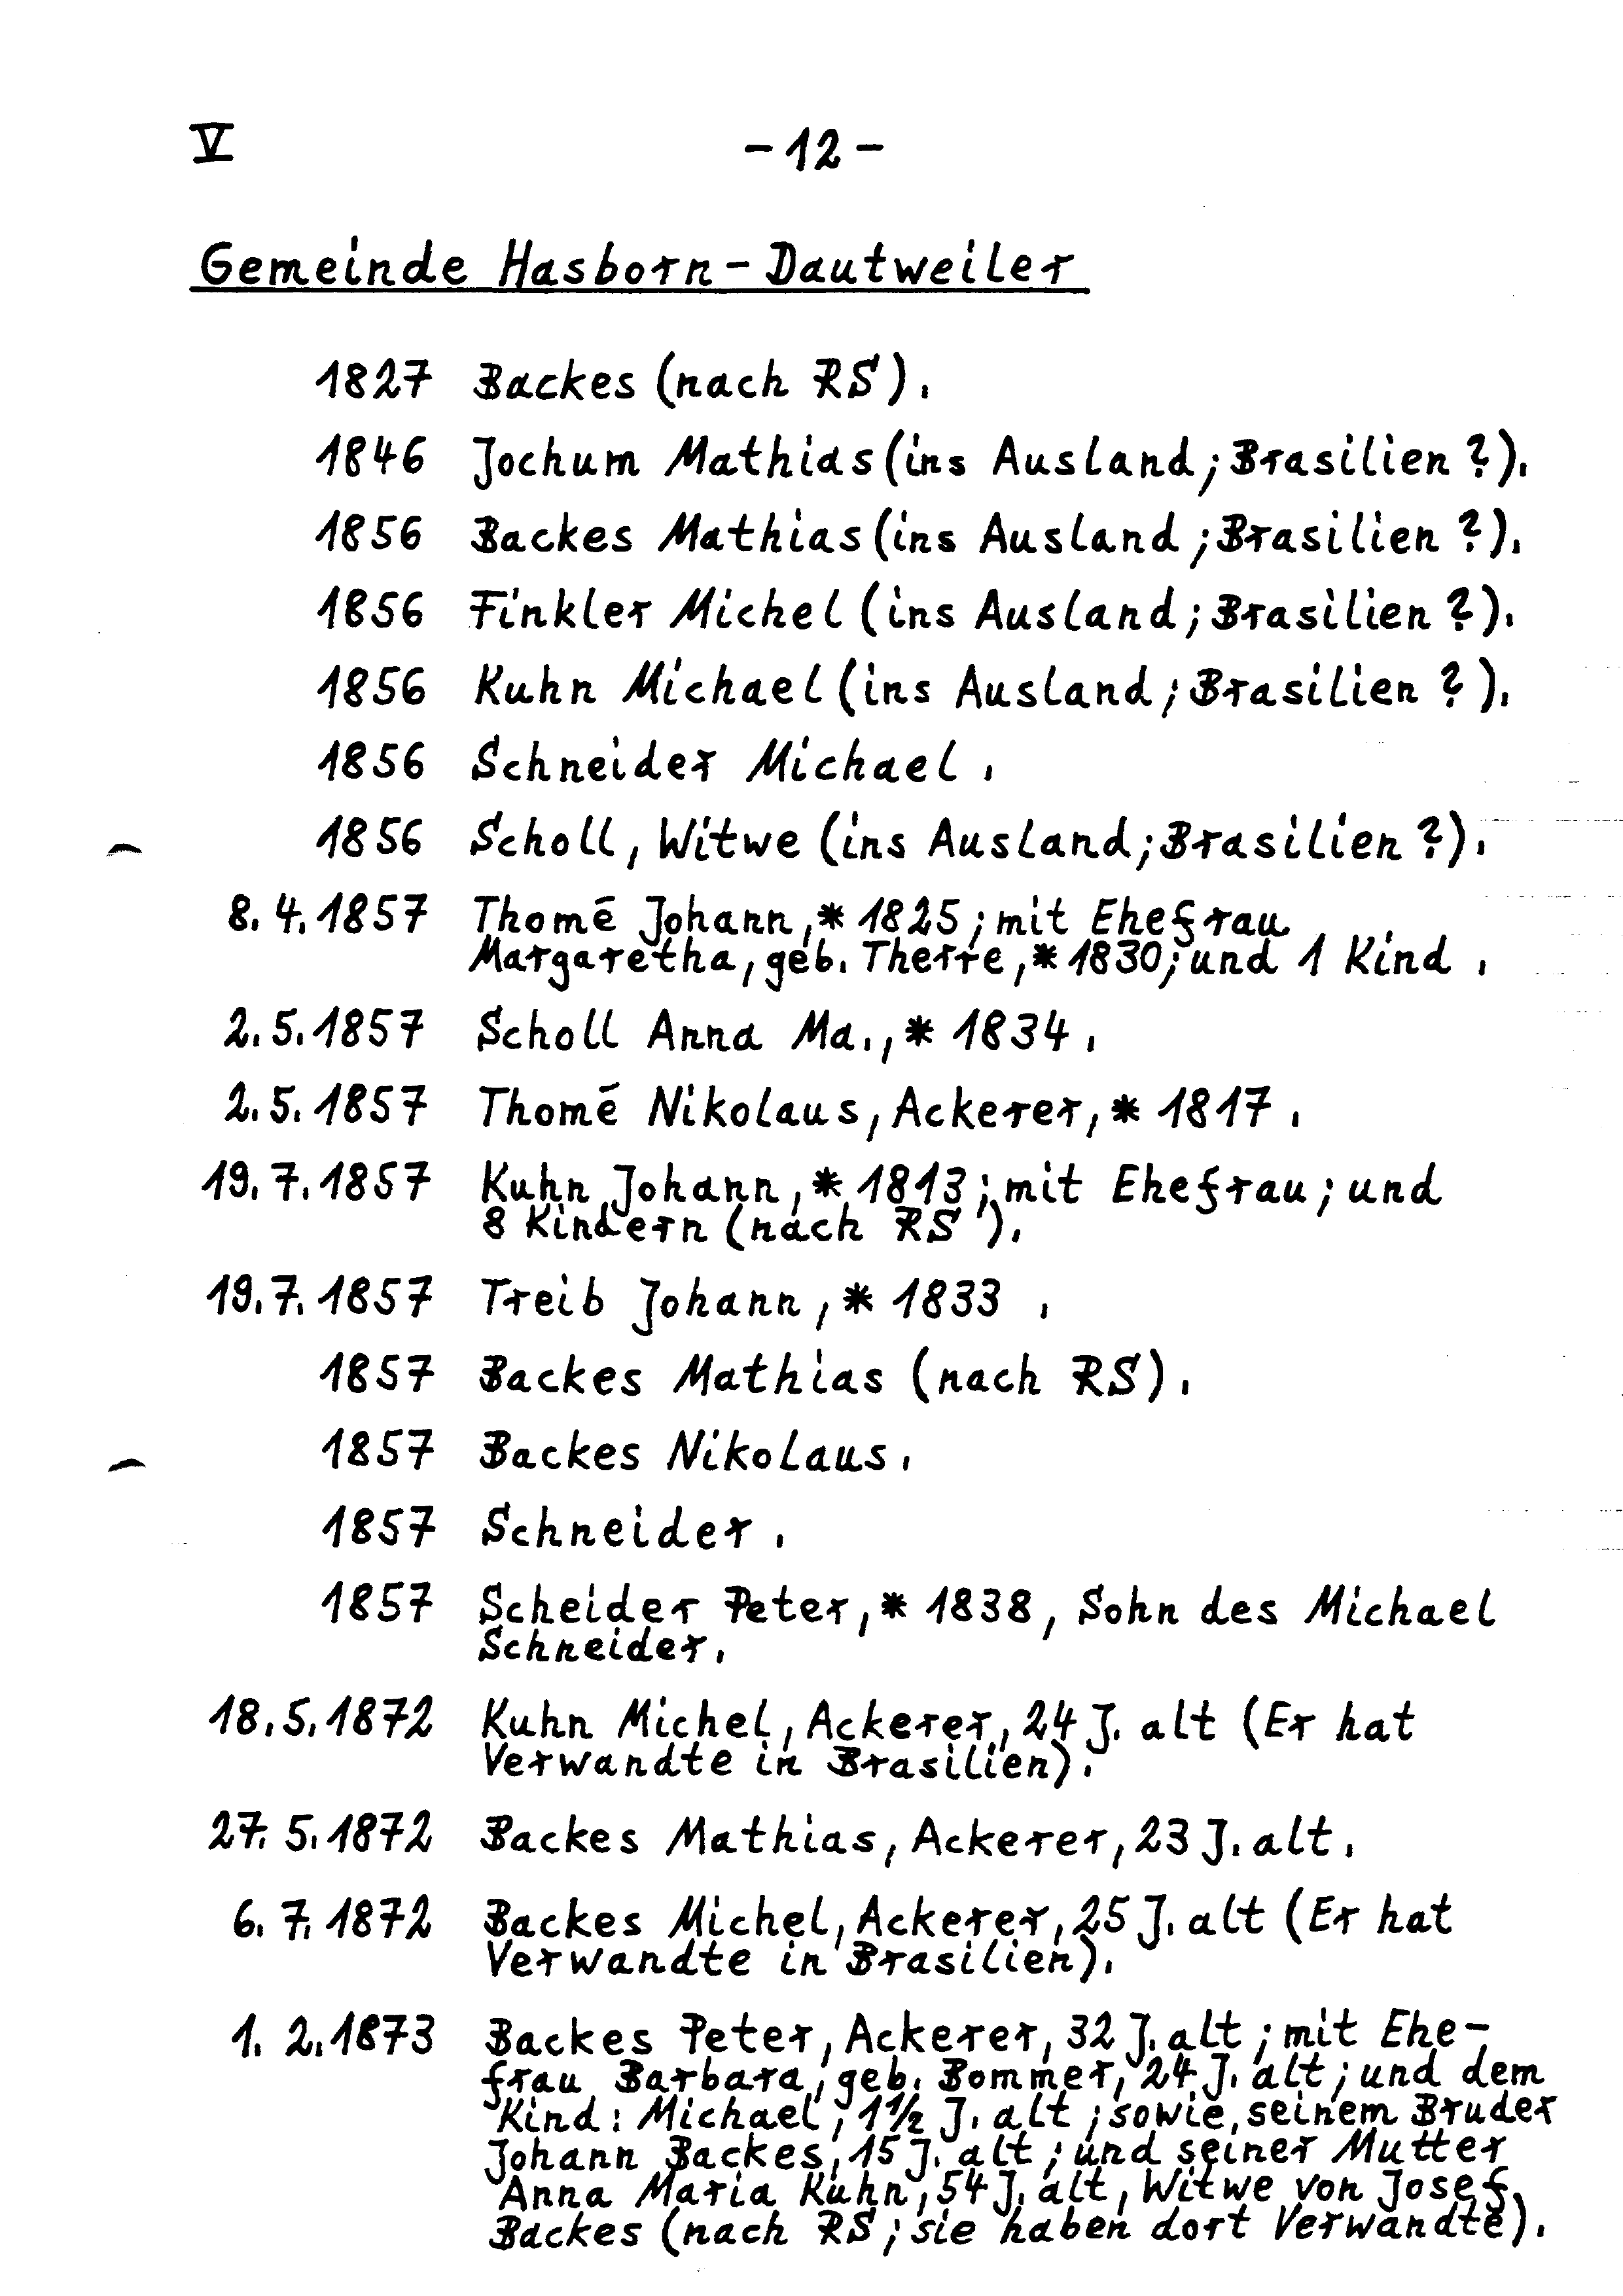 V
- 12 -
Gemeinde Hasborn-Dautweiler
1827 Backes (nach RS).
1846 Jochum Mathias (ins Ausland; Brasilien ?).
1856 Backes Mathias (ins Ausland; Brasilien ?).
1856 Finkler Michel (ins Ausland; Brasilien ?).
1856 Kuhn Michael (ins Ausland; Brasilien ?).
1856 Schneider Michael.
1856 Scholl, Witwe (ins Ausland; Brasilien ?).
8. 4. 1857 Thomé Johann, * 1825; mit Ehefrau
Margaretha, geb. Therre, * 1830; und 1 Kind.
2. 5. 1857 Scholl Anna Ma., * 1834.
2. 5. 1857 Thomé Nikolaus, Ackerer, * 1817.
19. 7. 1857 Kuhn Johann, * 1813; mit Ehefrau; und
8 Kindern (nach RS).
19. 7. 1857 Treib Johann, * 1833.
1857 Backes Mathias (nach RS).
1857 Backes Nikolaus.
1857 Schneider.
1857 Scheider Peter, * 1838, Sohn des Michael
Schneider.
18. 5. 1872 Kuhn Michel, Ackerer, 24 J. alt (Er hat
Verwandte in Brasilien).
27. 5. 1872 Backes Mathias, Ackerer, 23 J. alt.
6. 7. 1872 Backes Michel, Ackerer, 25 J. alt (Er hat
Verwandte in Brasilien).
1. 2. 1873 Backes Peter, Ackerer, 32 J. alt; mit Ehe-
frau Barbara, geb. Bommer, 24 J. alt; und dem
Kind: Michael, 1 1/2 J. alt; sowie seinem Bruder
Johann Backes, 15 J. alt; und seiner Mutter
Anna Maria Kuhn, 54 J. alt, Witwe von Josef
Backes (nach RS; sie haben dort Verwandte).